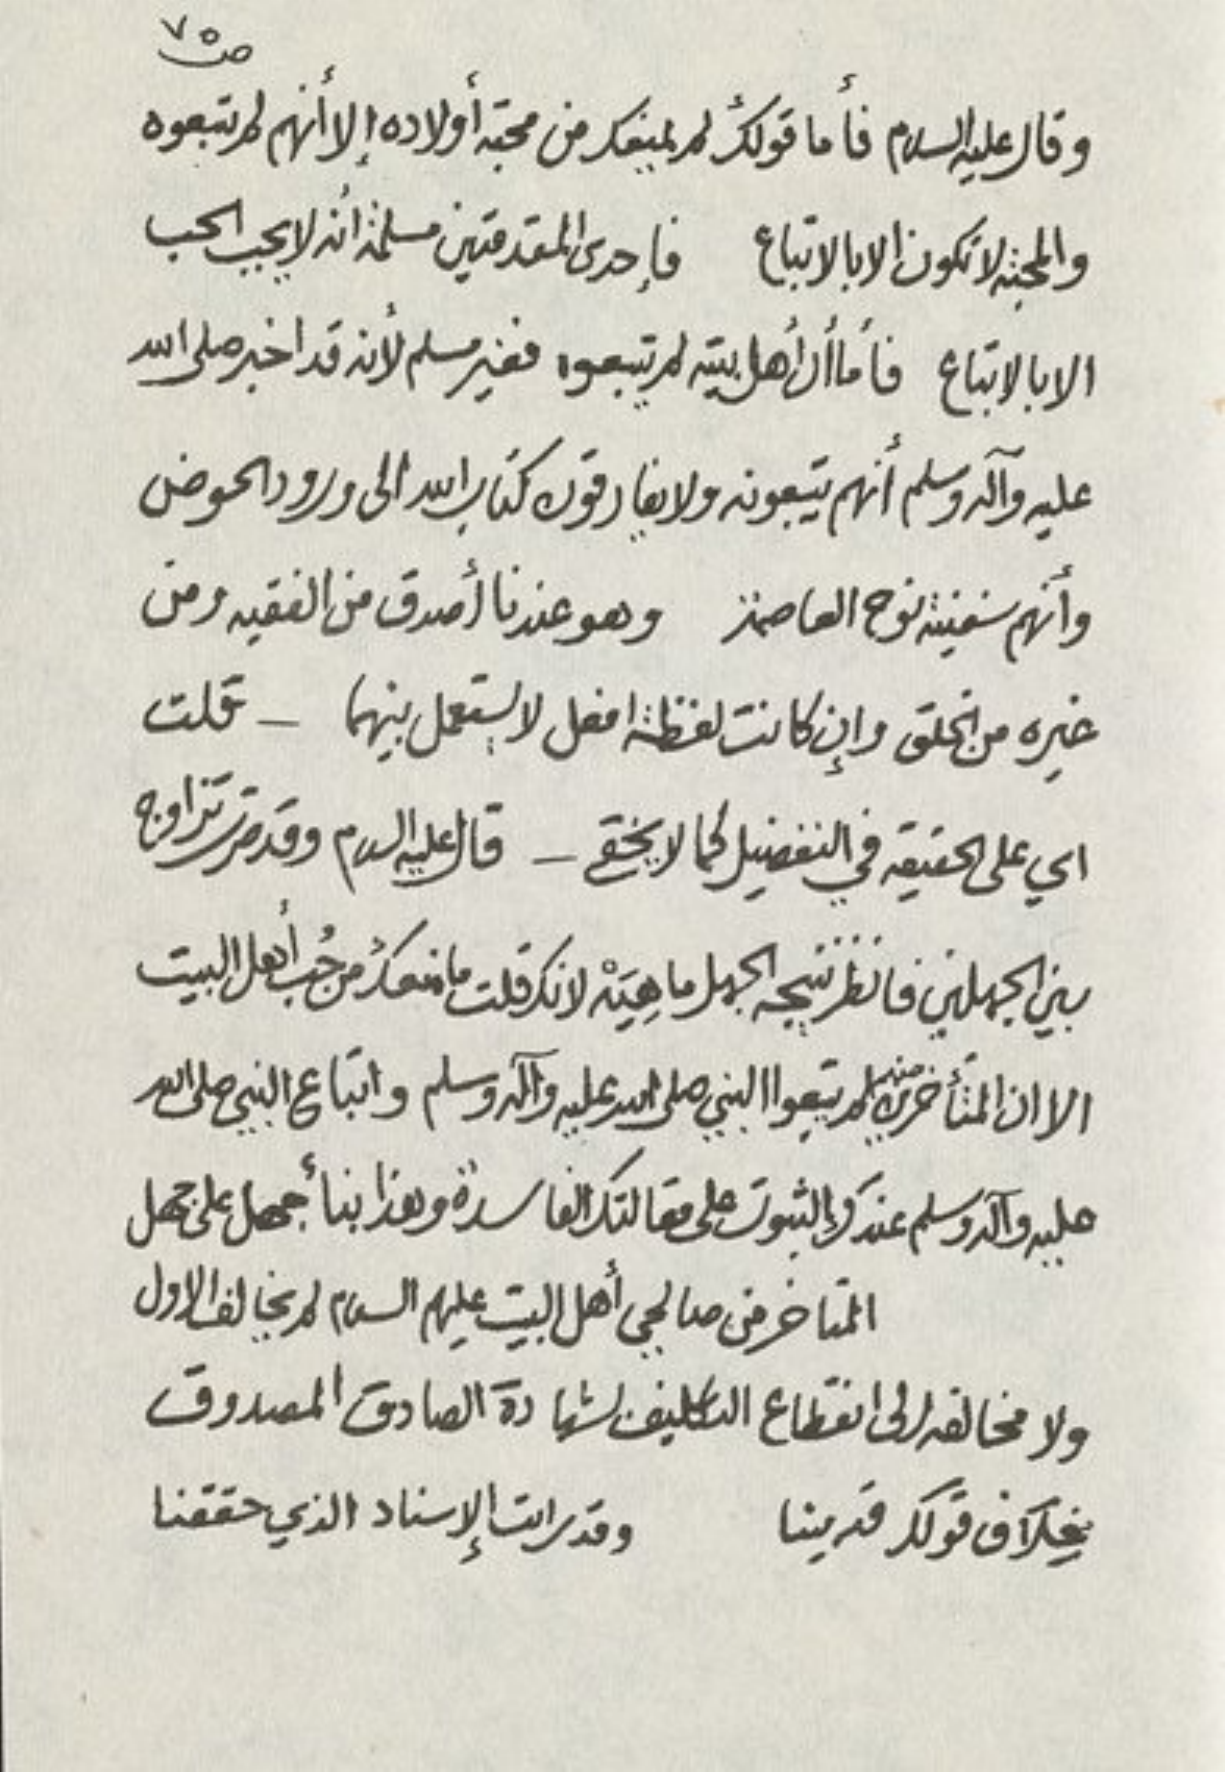 ص ٧٥
وقال عليه السلام فأما قولك لم يمنعك من محبة أولاده إلا أنهم لم يتبعوه
والمحبة لا تكون الا بالاتباع فإحدى المقدمتين مسلمة أنه لا يجب الحب
الا بالاتباع فأما أن أهل بيته لم يتبعوه فغير مسلم لأنه قد اخبر صلى الله
عليه وآله وسلم أنهم يتبعونه ولا يفارقون كتاب الله الى ورود الحوض
وأنهم سفينة نوح العاصمة وهو عندنا أصدق من الفقيه ومن
غيره من الخلق وإن كانت لفظة افعل لا يستعمل بينهما – قلت
اي على الحقيقة في التفضيل كما لا يخفى – قال عليه السلام وقد مرت تزاوج
بين الجهلين فانظر نتيجة الجهل ما هِيَهْ لانك قلت ما منعك من حُب أهل البيت
الا ان المتأخرين منهم لم يتبعوا النبي صلى الله عليه وآله وسلم واتباع النبي صلى الله
عليه وآله وسلم عندك الثبوت على مقالتك الفاسدة وهذا بنا أجهل على جهل
المتاخر من صالحي أهل البيت عليهم السلام لم يخالف الاول
ولا مخالفه الى انقطاع التكليف لشهادة الصادق المصدوق
بخلاف قولك قد بينا وقد رأيت الإسناد الذي حققنا